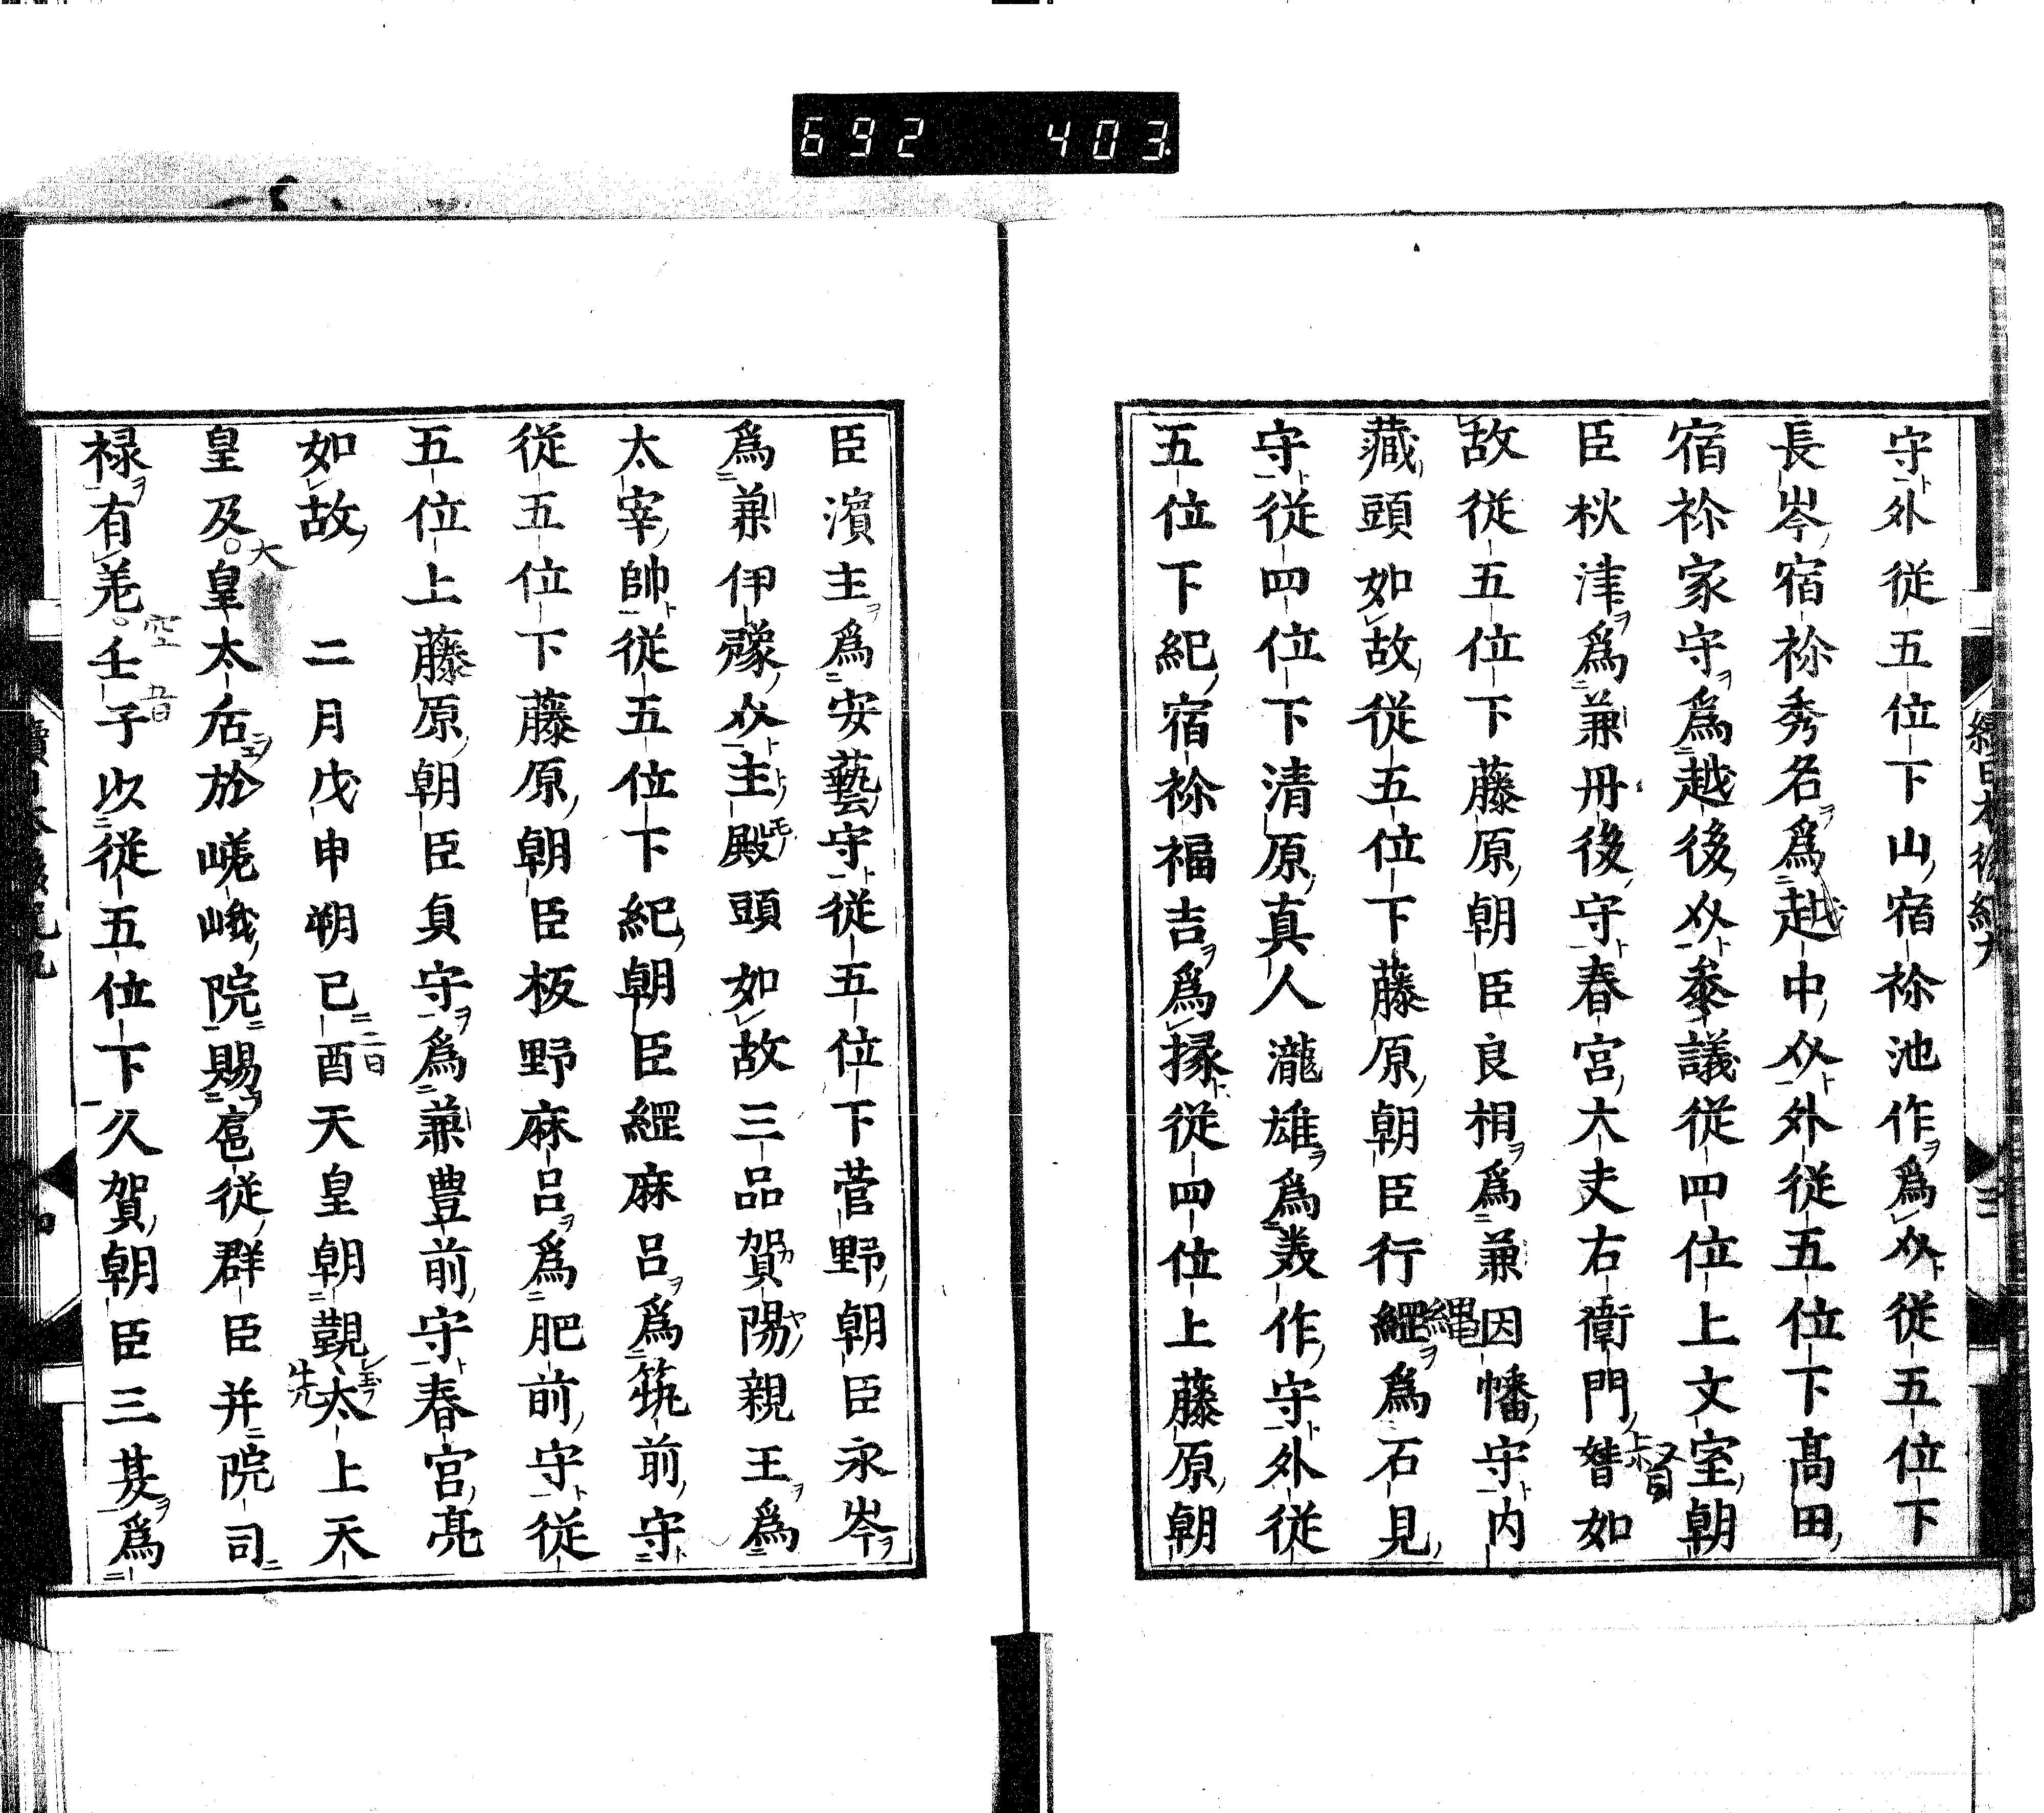 692 403
守外従五位下山宿祢池作為介従五位下
長岑宿祢秀名為越中介外従五位下高田
宿祢家守為越後介参議従四位上文室朝
臣秋津為兼丹後守春宮大夫右衛門督如
故従五位下藤原朝臣良相為兼因幡守内
蔵頭如故従五位下藤原朝臣行縄為石見
守従四位下清原真人瀧雄為美作守外従
五位下紀宿祢福吉為掾従四位上藤原朝
臣濱主為安藝守従五位下菅野朝臣永岑
為兼伊豫介主殿頭如故三品賀陽親王為
太宰帥従五位下紀朝臣縄麻呂為筑前守
従五位下藤原朝臣板野麻呂為肥前守従
五位上藤原朝臣貞守為兼豊前守春宮亮
如故 二月戊申朔己酉天皇朝覲太上天
皇及皇太后於嵯峨院賜扈従群臣并院司
禄有差壬子以従五位下久賀朝臣三基為